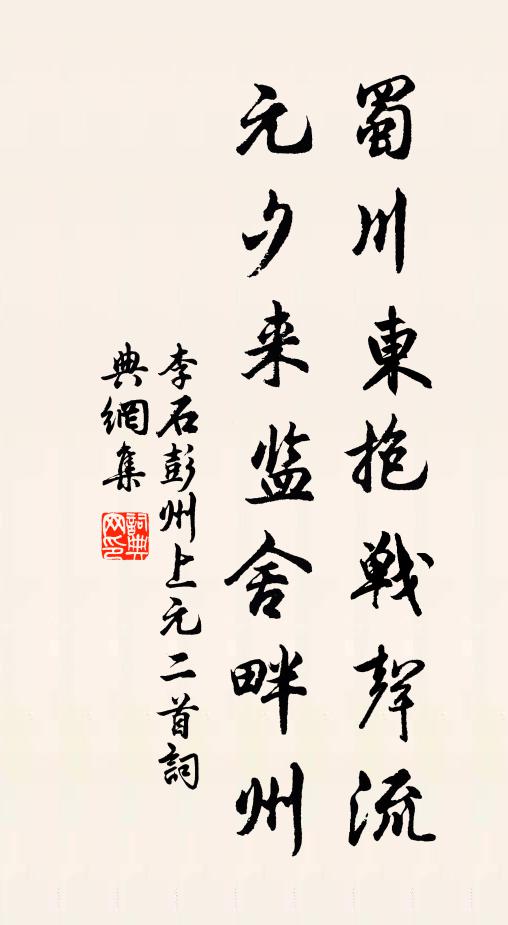 蜀川東抱戦聲流
元夕来監舍畔州
李石彭州上元二首詞
典網集
詞典網印